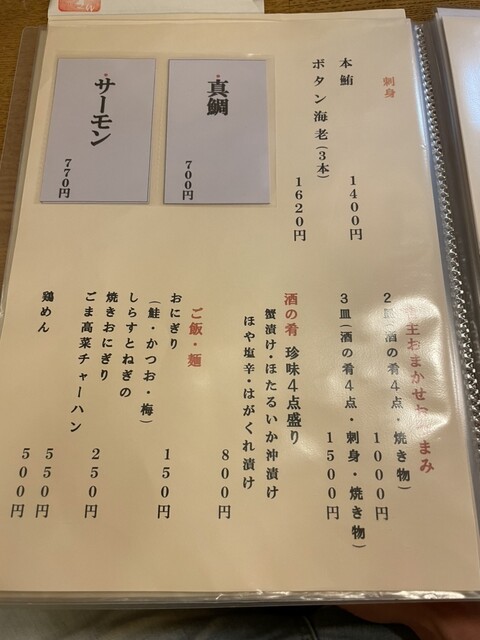 刺身
本鮪 1400円
ボタン海老(3本) 1620円
真鯛 700円
サーモン 770円
主おまかせ
まみ
2皿(酒の肴4点・焼き物) 1000円
3皿(酒の肴4点・刺身・焼き物) 1500円
酒の肴 珍味4点盛り
蟹漬け・ほたるいか沖漬け
ほや塩辛・はがくれ漬け
800円
ご飯・麺
おにぎり
(鮭・かつお・梅) 150円
しらすとねぎの
焼きおにぎり 250円
ごま高菜チャーハン 550円
鶏めん 500円